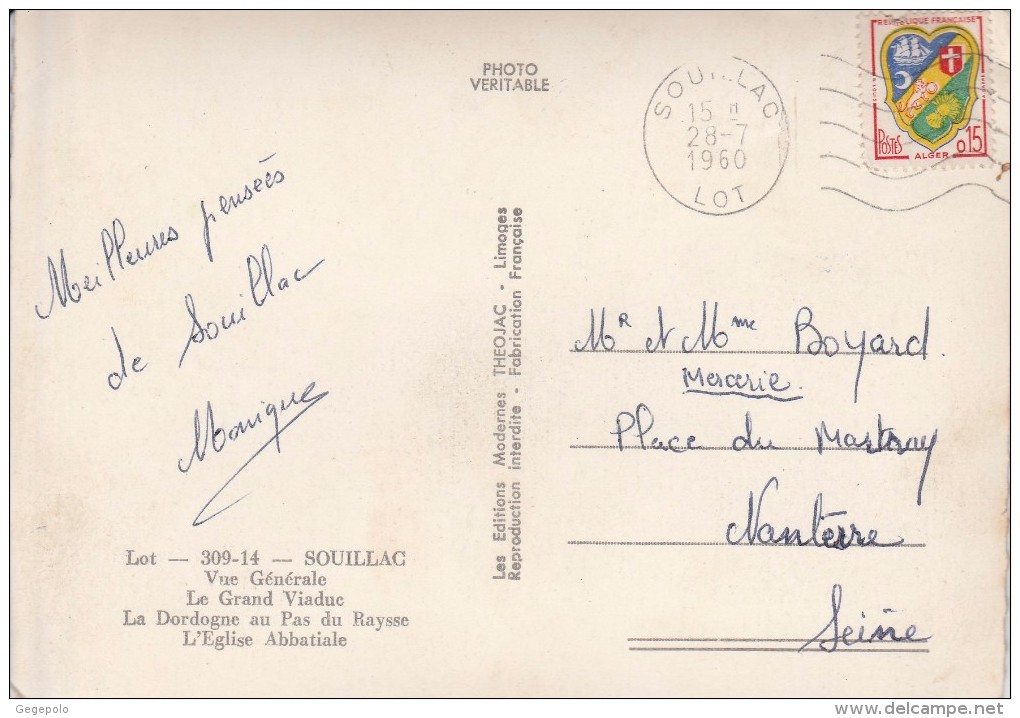 PHOTO
VERITABLE
SOUILLAC
15 H
28-7
1960
LOT
REPUBLIQUE FRANÇAISE
POSTES
ALGER
0,15
Meilleures pensées
de Souillac
Monique
Lot — 309-14 — SOUILLAC
Vue Générale
Le Grand Viaduc
La Dordogne au Pas du Raysse
L'Eglise Abbatiale
Les Editions Modernes THEOJAC - Limoges
Reproduction interdite - Fabrication Française
Mr et Mme Boyard.
Mercerie.
Place du Martray
Nanterre
Seine
Gegepolo
delcampe.net